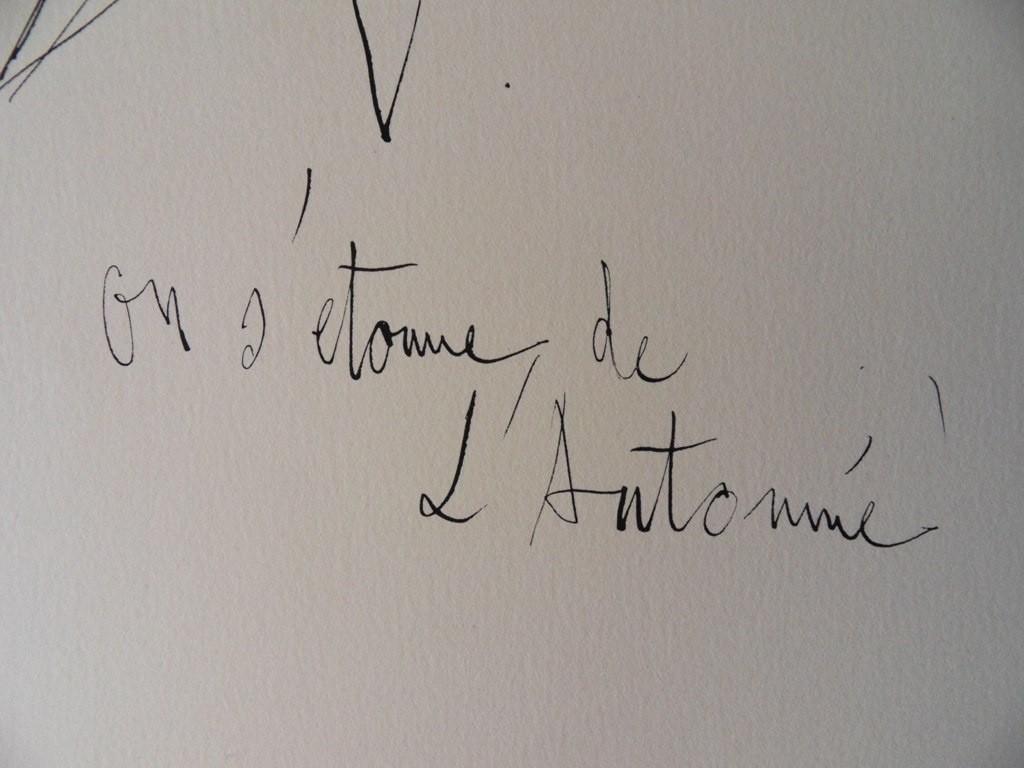 on s'étonne, de
L'Antonné